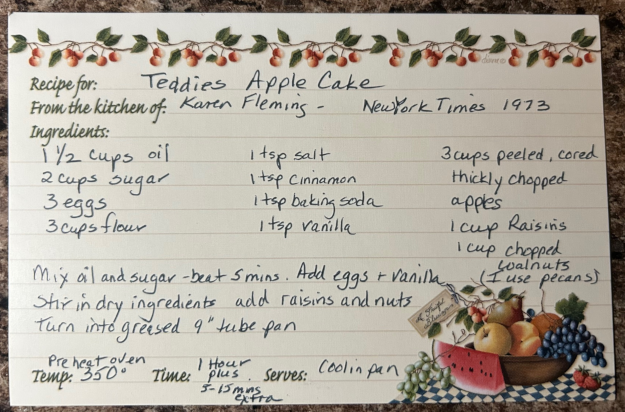 Recipe for: Teddies Apple Cake
From the kitchen of: Karen Fleming - New York Times 1973
Ingredients:
1 1/2 cups oil
2 cups sugar
3 eggs
3 cups flour
1 tsp salt
1 tsp cinnamon
1 tsp baking soda
1 tsp vanilla
3 cups peeled, cored
thickly chopped
apples
1 cup Raisins
1 cup chopped
walnuts
(I use pecans)
Mix oil and sugar - beat 5 mins. Add eggs + vanilla
Stir in dry ingredients add raisins and nuts
Turn into greased 9" tube pan
Preheat oven
Temp: 350°
Time: 1 Hour
plus
5-15 mins
extra
Serves: Cool in pan